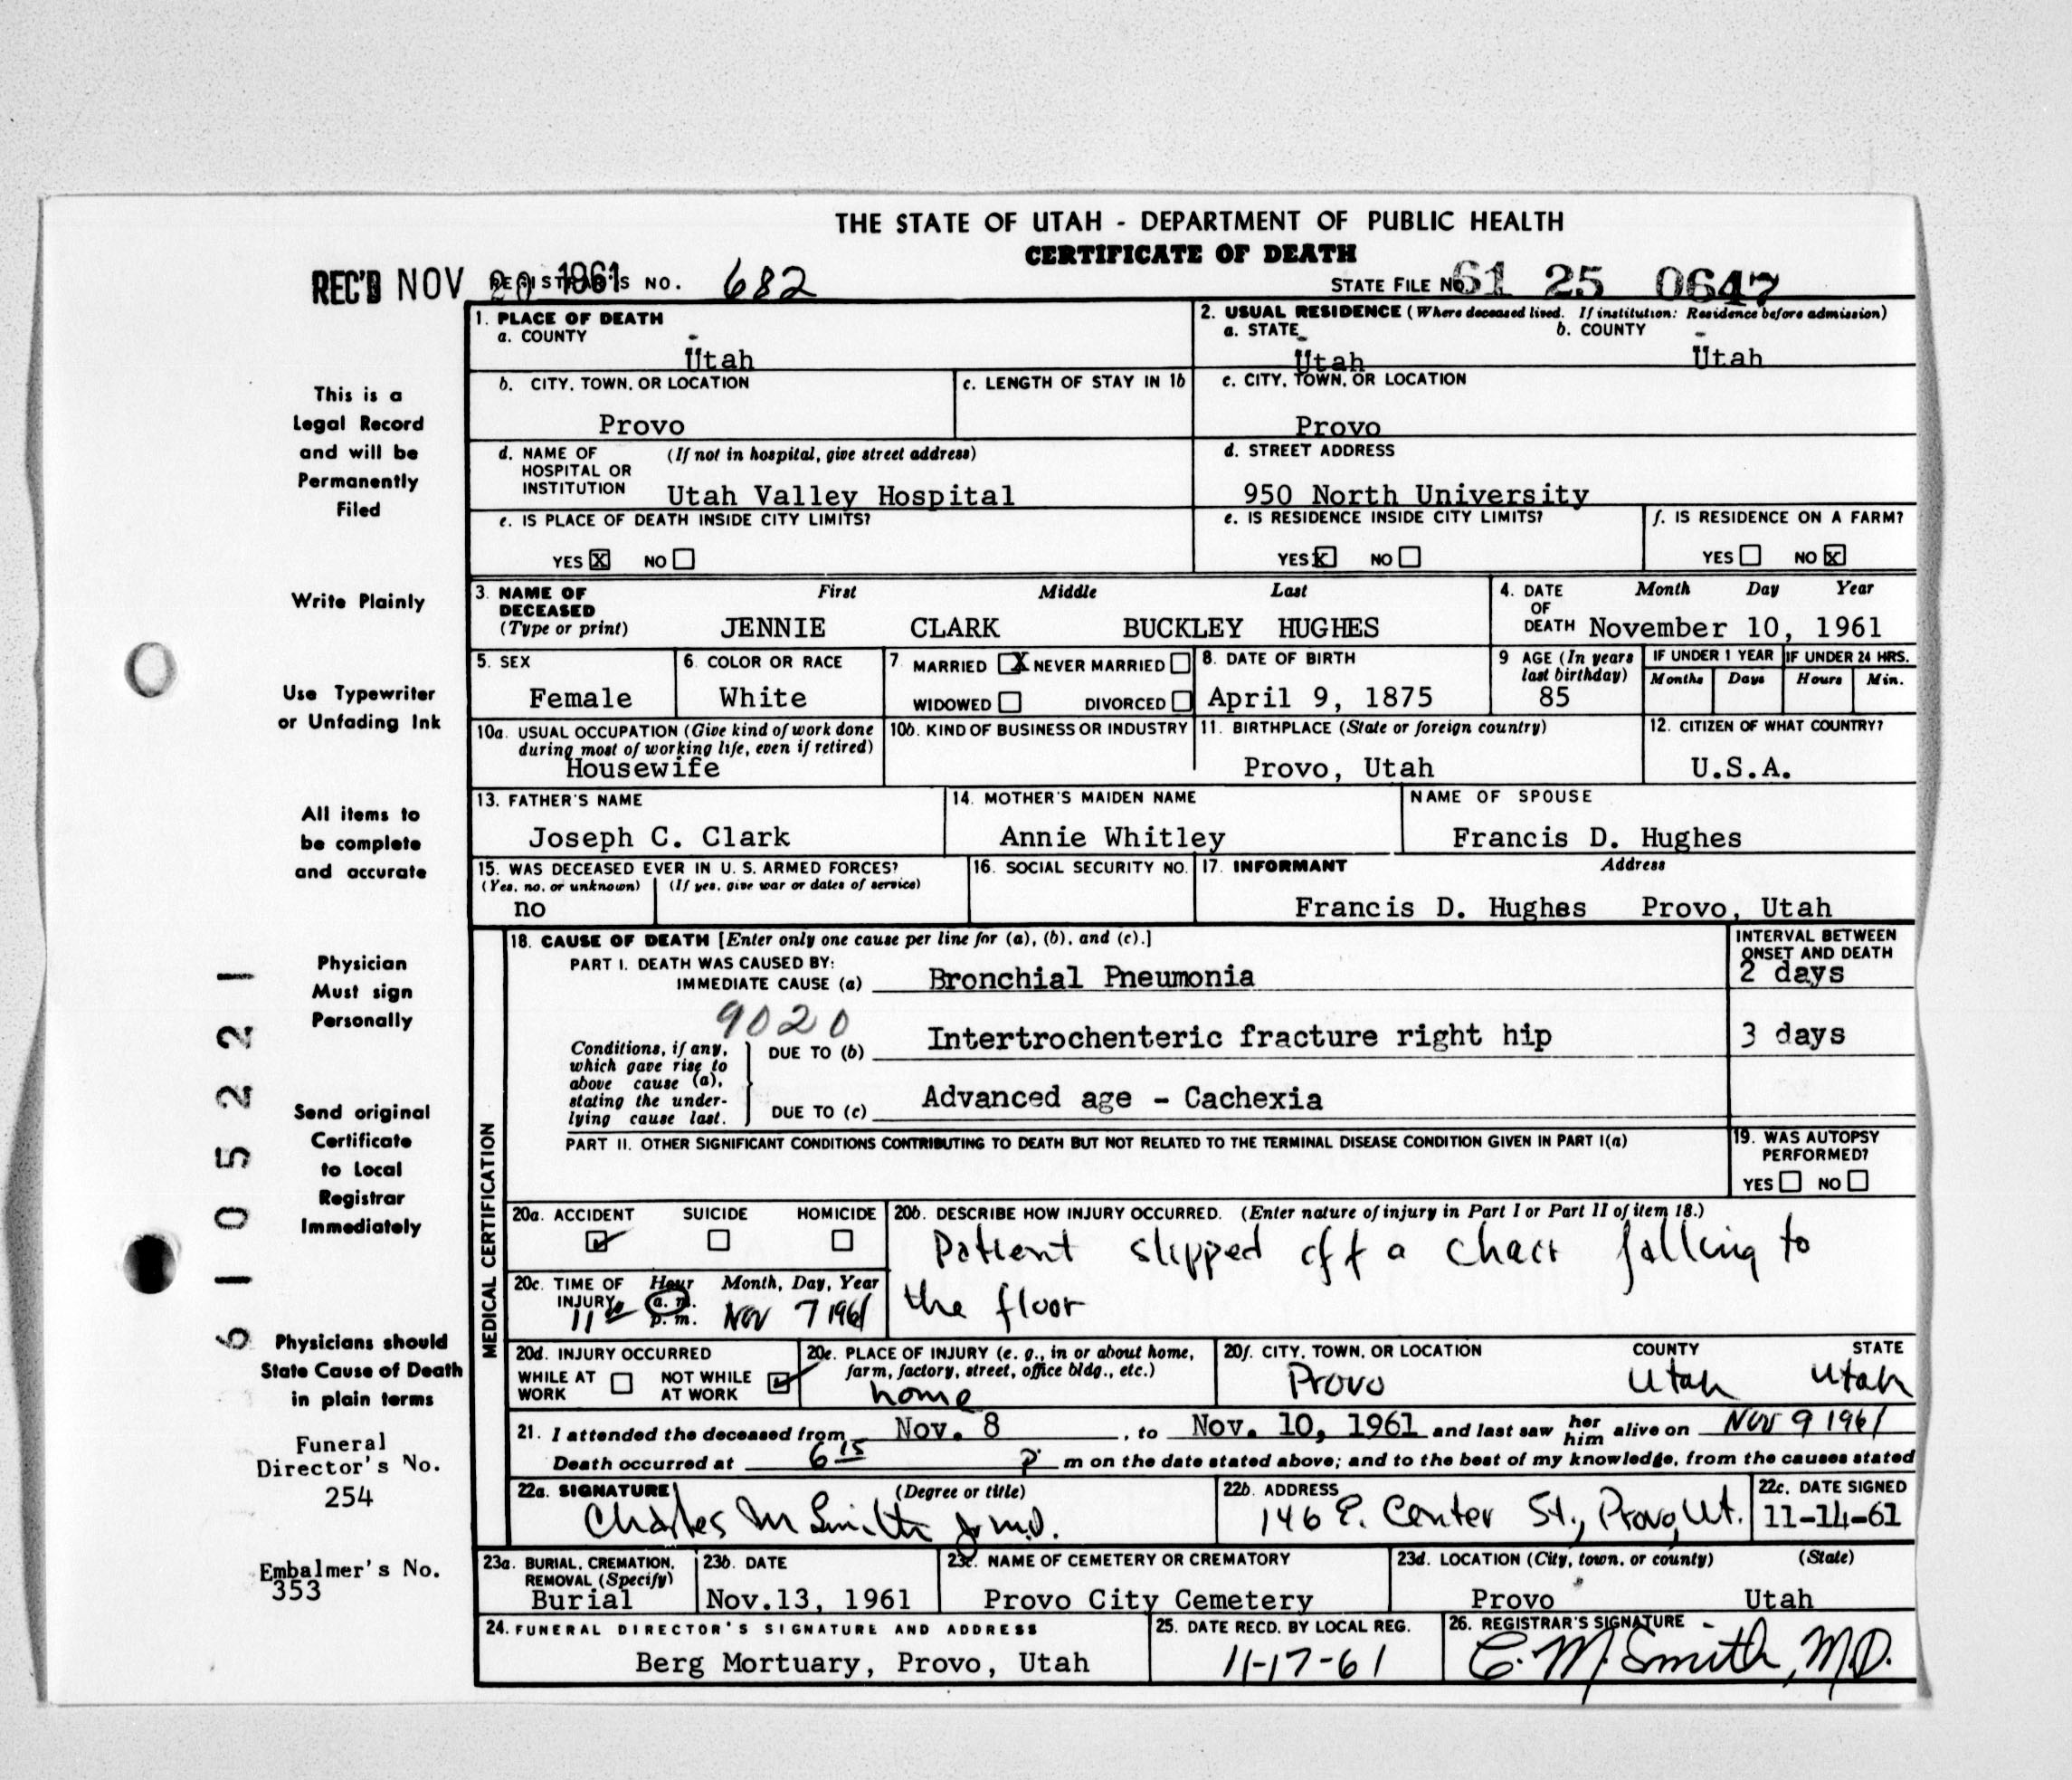 THE STATE OF UTAH - DEPARTMENT OF PUBLIC HEALTH
CERTIFICATE OF DEATH
REC'D NOV 20 1961 REGISTRAR'S NO. 682 STATE FILE NO. 61 25 0647
This is a
Legal Record
and will be
Permanently
Filed
Write Plainly
Use Typewriter
or Unfading Ink
All items to
be complete
and accurate
Physician
Must sign
Personally
Send original
Certificate
to Local
Registrar
Immediately
Physicians should
State Cause of Death
in plain terms
Funeral
Director's No.
254
Embalmer's No.
353
6105221
1. PLACE OF DEATH
a. COUNTY
Utah
2. USUAL RESIDENCE (Where deceased lived. If institution: Residence before admission)
a. STATE b. COUNTY
Utah Utah
b. CITY, TOWN, OR LOCATION
Provo
c. LENGTH OF STAY IN 1b
c. CITY, TOWN, OR LOCATION
Provo
d. NAME OF (If not in hospital, give street address)
HOSPITAL OR
INSTITUTION Utah Valley Hospital
d. STREET ADDRESS
950 North University
e. IS PLACE OF DEATH INSIDE CITY LIMITS?
YES X NO
e. IS RESIDENCE INSIDE CITY LIMITS?
YES X NO
f. IS RESIDENCE ON A FARM?
YES NO X
3. NAME OF First Middle Last
DECEASED
(Type or print) JENNIE CLARK BUCKLEY HUGHES
4. DATE Month Day Year
OF
DEATH November 10, 1961
5. SEX
Female
6. COLOR OR RACE
White
7 MARRIED X NEVER MARRIED
WIDOWED DIVORCED
8. DATE OF BIRTH
April 9, 1875
9 AGE (In years
last birthday)
85
IF UNDER 1 YEAR IF UNDER 24 HRS.
Months Days Hours Min.
10a. USUAL OCCUPATION (Give kind of work done
during most of working life, even if retired)
Housewife
10b. KIND OF BUSINESS OR INDUSTRY
11. BIRTHPLACE (State or foreign country)
Provo, Utah
12. CITIZEN OF WHAT COUNTRY?
U.S.A.
13. FATHER'S NAME
Joseph C. Clark
14. MOTHER'S MAIDEN NAME
Annie Whitley
NAME OF SPOUSE
Francis D. Hughes
15. WAS DECEASED EVER IN U. S. ARMED FORCES?
(Yes, no, or unknown) (If yes, give war or dates of service)
no
16. SOCIAL SECURITY NO.
17. INFORMANT Address
Francis D. Hughes Provo, Utah
MEDICAL CERTIFICATION
18. CAUSE OF DEATH [Enter only one cause per line for (a), (b), and (c).]
PART I. DEATH WAS CAUSED BY:
IMMEDIATE CAUSE (a) Bronchial Pneumonia
INTERVAL BETWEEN
ONSET AND DEATH
2 days
9020
Conditions, if any,
which gave rise to
above cause (a),
stating the under-
lying cause last.
DUE TO (b) Intertrochenteric fracture right hip 3 days
DUE TO (c) Advanced age - Cachexia
PART II. OTHER SIGNIFICANT CONDITIONS CONTRIBUTING TO DEATH BUT NOT RELATED TO THE TERMINAL DISEASE CONDITION GIVEN IN PART I(a)
19. WAS AUTOPSY
PERFORMED?
YES NO
20a. ACCIDENT SUICIDE HOMICIDE
20b. DESCRIBE HOW INJURY OCCURRED. (Enter nature of injury in Part I or Part II of item 18.)
Patient slipped off a chair falling to
the floor
20c. TIME OF Hour Month, Day, Year
INJURY 11 00 a. m. p. m. Nov 7 1961
20d. INJURY OCCURRED
WHILE AT WORK NOT WHILE AT WORK
20e. PLACE OF INJURY (e. g., in or about home,
farm, factory, street, office bldg., etc.)
home
20f. CITY, TOWN, OR LOCATION COUNTY STATE
Provo Utah Utah
21. I attended the deceased from Nov. 8, to Nov. 10, 1961 and last saw her him alive on Nov 9 1961
Death occurred at 6 15 p. m on the date stated above; and to the best of my knowledge, from the causes stated
22a. SIGNATURE (Degree or title)
Charles M Smith Jr M.D.
22b. ADDRESS
146 E. Center St., Provo, Ut.
22c. DATE SIGNED
11-14-61
23a. BURIAL, CREMATION,
REMOVAL (Specify)
Burial
23b. DATE
Nov.13, 1961
23c. NAME OF CEMETERY OR CREMATORY
Provo City Cemetery
23d. LOCATION (City, town, or county) (State)
Provo Utah
24. FUNERAL DIRECTOR'S SIGNATURE AND ADDRESS
Berg Mortuary, Provo, Utah
25. DATE RECD. BY LOCAL REG.
11-17-61
26. REGISTRAR'S SIGNATURE
C. M. Smith, M.D.